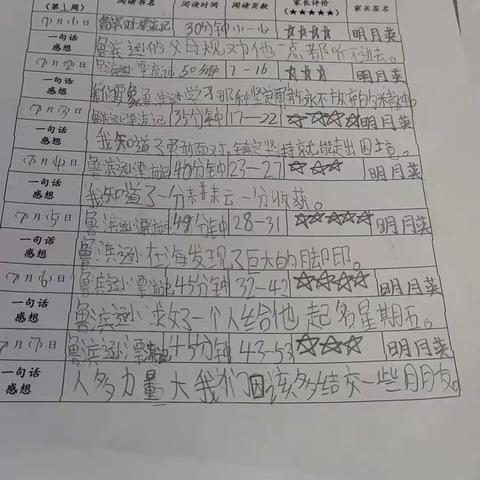 (第1周) 阅读书名 阅读时间 阅读页数 家长评价 (★★★★★) 家长签名
7月1日 鲁滨逊漂流记 30分钟 1-6 ☆☆☆ 明月英
一句话感想 鲁滨逊的父母规劝他一点都听不进去。
7月2日 鲁滨逊漂流记 50分钟 7-16 ☆☆☆ 明月英
一句话感想 我们要象鲁滨逊学习那种坚定勇敢永不放弃的精神
7月3日 鲁滨逊漂流记 35分钟 17-22 ☆☆☆☆☆ 明月英
一句话感想 我知道了勇敢面对,镇定坚持就能走出困境
7月4日 鲁滨逊漂流记 40分钟 23-27 ☆☆☆ 明月英
一句话感想 我知道了一分耕耘一分收获。
7月5日 鲁滨逊漂流记 48分钟 28-31 ☆☆☆☆☆ 明月英
一句话感想 鲁滨逊在海发现了巨大的脚印。
7月6日 鲁滨逊漂流记 45分钟 32-42 ☆☆☆☆ 明月英
一句话感想 鲁滨逊求了一个人给他起名星期五。
7月7日 鲁滨逊漂流记 45分钟 43-53 ☆☆☆ 明月英
一句话感想 人多力量大我们因该多结交一些朋友。